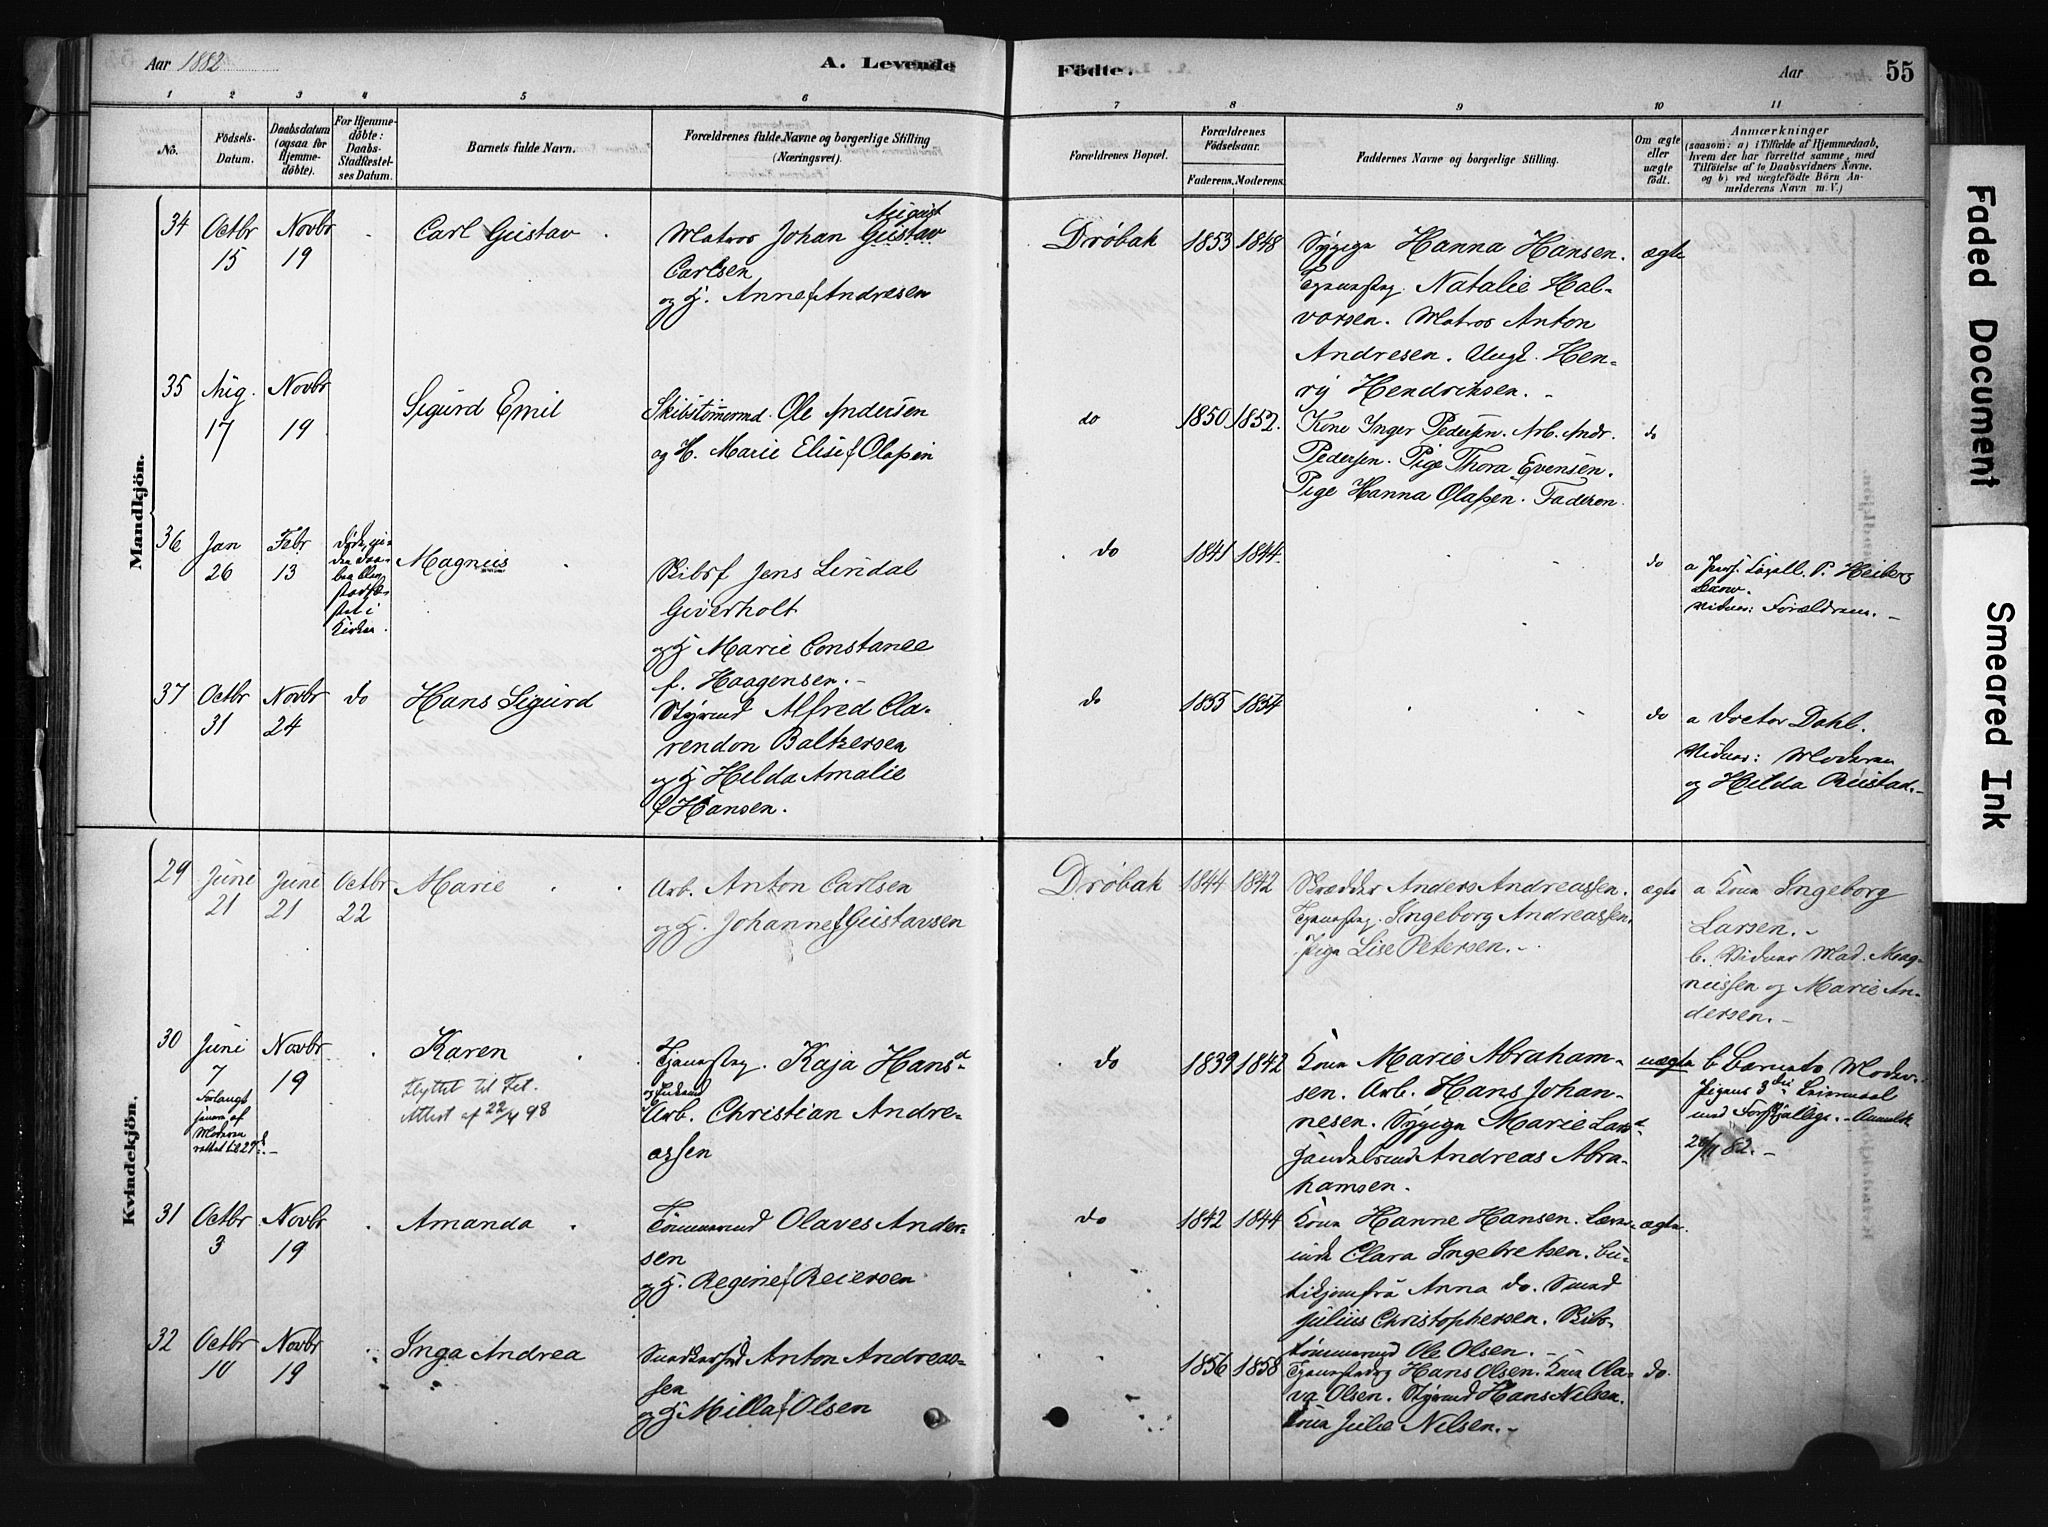 Aar 1882
A. Levende
Födte.
Aar
55
1 2 3 4 5 6 7 8 9 10 11
No.
Födsels-
Datum.
Daabsdatum
(ogsaa for
Hjemme-
döbte).
For Hjemme-
döbte:
Daabs-
Stadfæstel-
ses Datum.
Barnets fulde Navn.
Forældrenes fulde Navne og borgerlige Stilling
(Næringsvei).
Forældrenes Bopæl.
Forældrenes
Födselsaar.
Faderens. Moderens.
Faddernes Navne og borgerlige Stilling.
Om ægte
eller
uægte
födt.
Anmærkninger
(saasom: a) i Tilfælde af Hjemmedaab,
hvem der har forrettet samme, med
Tilföielse af to Daabsvidners Navne,
og b) ved uægtefödte Börn An-
melderens Navn m. V.)
Mandkjön.
34
Octbr
15
Novbr
19
Carl Gustav
August
Matros Johan Gustav
Carlsen
og H. Anne f Andresen
Dröbak
1853 1848
Hanna Hansen.
Natalie Hal-
vorsen. Matros Anton
Andresen. Ungk. Hen-
ry Hendriksen.
ægte
35
Aug.
17
Novbr
19
Sigurd Emil
Skibstömermd. Ole Andersen
og H. Marie Elise f Olassen
do
1850 1852.
Kone Inger Pedersen. Arb. Andr.
Pedersen. Pige Thora Evensen.
Pige Hanna Olassen. Faderen.
do
36
Jan
26
Febr
13
Kirken.
Magnus
Skibsf Jens Lindal
Giverholt
og H Marie Constance
f. Haagensen.
do
1841 1844
do
Vidner: Forældrene.
37
Octbr
31
Novbr
24
do
Hans Sigurd
Styrmd Alfred Cla-
rendon Baltzersen
og H Hilda Amalie
f Hansen.
do
1855 1854
do
a Doctor Dahl.
Vidner: Moderen
og Hilda Rustad.
Kvindekjön.
29
Juni
21
Juni
21
Octbr
22
Marie
Arb. Anton Carlsen
og H. Johanne f Gustavsen
Dröbak
1844 1842
Skrædder Anders Andreassen.
Ingeborg Andreassen.
Pige Lise Petersen.
ægte
a Kone Ingeborg
Larsen.
b. Vidner Mad. Mag-
nussen og Marie An-
dersen.
30
Juni
7
Novbr
19
Karen
Flyttet til Fet.
Attest af 22/4 98
Kaja Hansd
Arb. Christian Andre-
assen
do
1839 1842
Kone Marie Abraham-
sen. Arb. Hans Johan-
nesen. Marie Larsd
Andreas Abra-
hamsen.
uægte
b Barnets Moder.
82.
31
Octbr
3
Novbr
19
Amanda
Tömmermd Olaves Ander-
sen
og H. Regine f Reiersen
do
1842 1844
Kone Hanne Hansen. Lærer-
inde Clara Ingebretsen. Bu-
tikjomfru Anna do. Smed
Julius Christophersen. Skibs-
tömmermd Ole Olsen.
ægte.
32
Octbr
10
Novbr
19
Inga Andrea
Anton Andreas-
sen
og H Milla f Olsen
1856 1858
Hans Olsen. Kone Ola-
va Olsen. Styrmd Hans Nilsen.
Kone Julie Nilsen.
do.
Faded Document
Smeared Ink